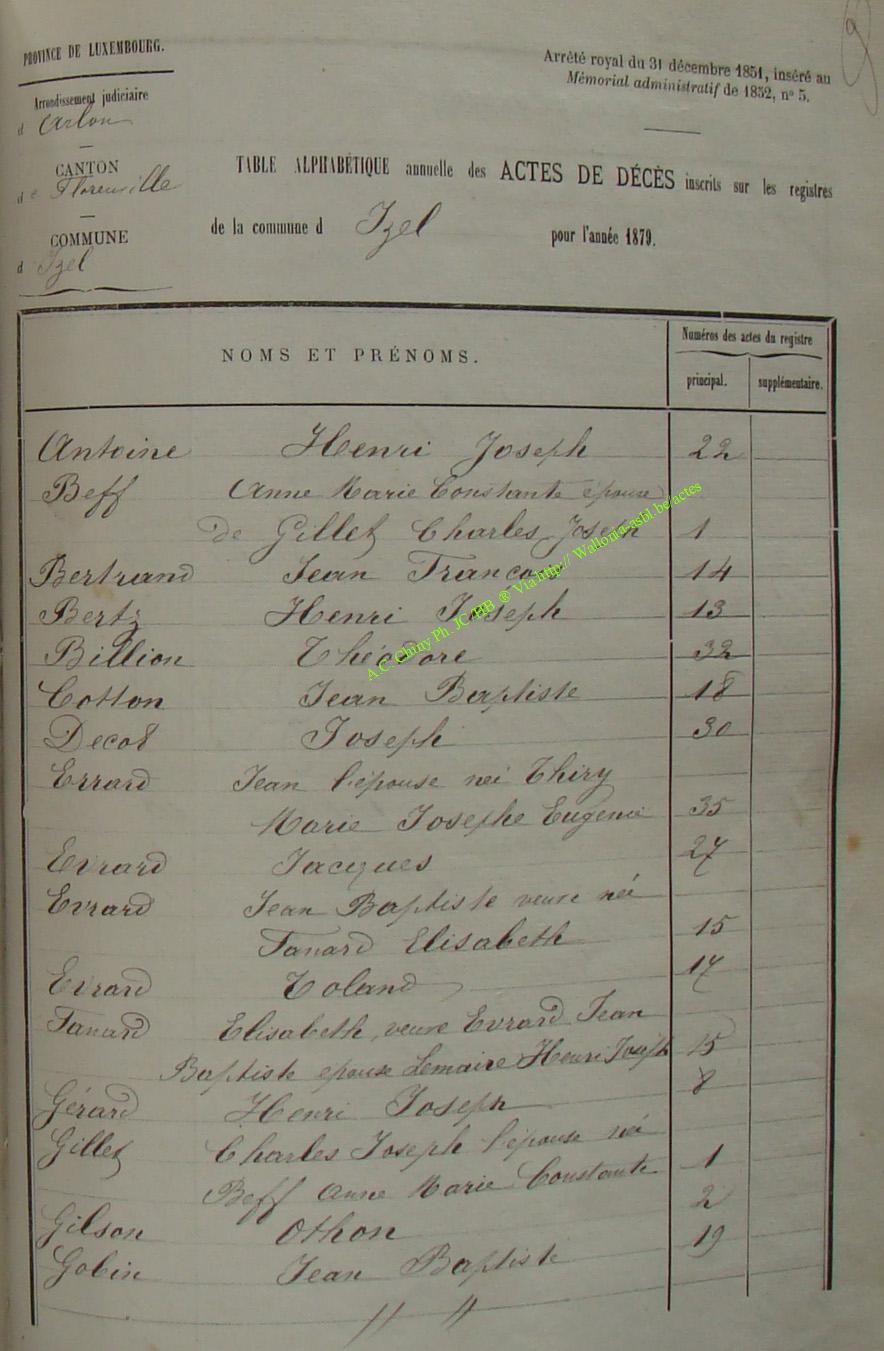 PROVINCE DE LUXEMBOURG.
Arrondissement judiciaire
d'Arlon
CANTON
de Florenville
COMMUNE
d Izel
Arrêté royal du 31 décembre 1851, inséré au
Mémorial administratif de 1852, n° 5.
TABLE ALPHABÉTIQUE annuelle des ACTES DE DÉCÈS inscrits sur les registres
de la commune d Izel pour l'année 1879.
NOMS ET PRÉNOMS.
Numéros des actes du registre
principal. supplémentaire.
Antoine Henri Joseph 22
Beff Anne Marie Constante épouse
de Gillet Charles Joseph 1
Bertrand Jean François 14
Bertz Henri Joseph 13
Billion Théodore 32
Cotton Jean Baptiste 18
Decot Joseph 30
Errard Jean l'épouse née Thiry
Marie Josephe Eugenie 35
Evrard Jacques 27
Evrard Jean Baptiste veuve née
Fanard Elisabeth 15
Evrard Toland 17
Fanard Elisabeth, veuve Evrard Jean
Baptiste épouse Lemaire Henri Joseph 15
Gérard Henri Joseph 8
Gillet Charles Joseph l'épouse née
Beff Anne Marie Constante 1
Gilson Othon 2
Gobin Jean Baptiste 19
// //
A.C. Chiny Ph. JC/HB ® Via http// Wallonia-asbl.be/actes